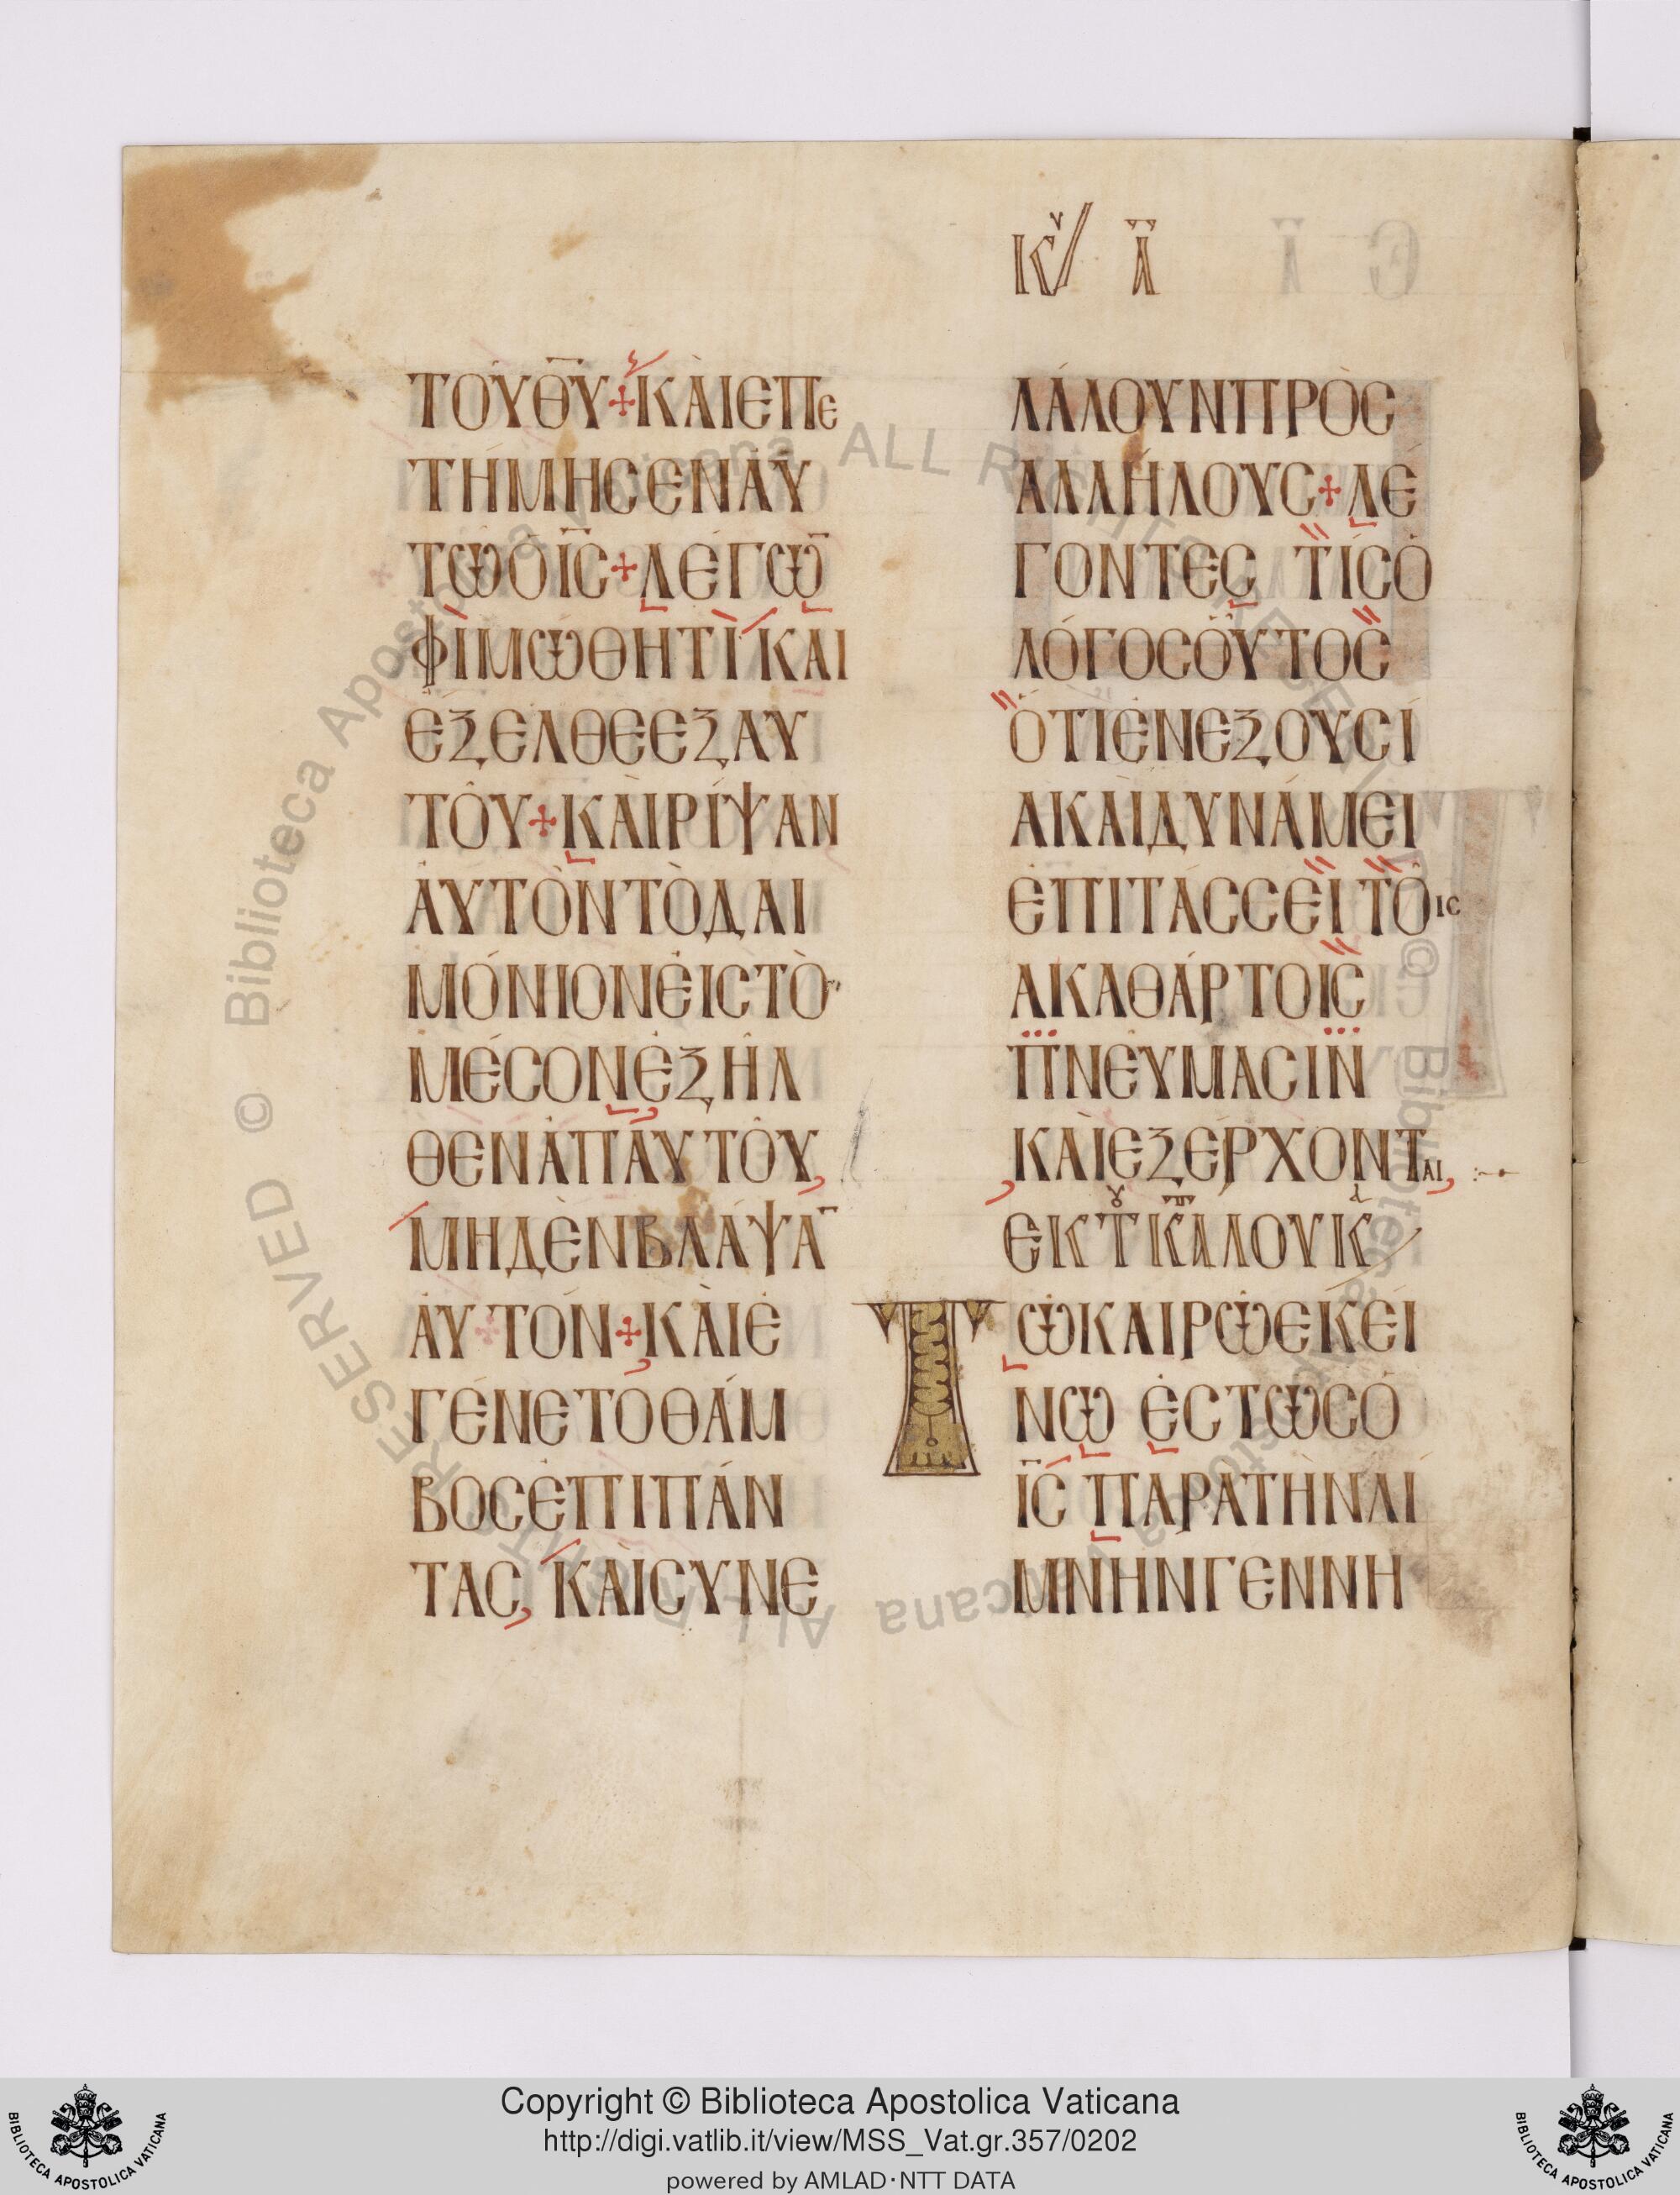 Κυ Ϊ
ΤΟΥΘΥ+ΚΑΙΕΠΕ
ΤΗΜΗϹΕΝΑΥ
ΤΩΟΙϹ+ΛΕΓΩ̅
ΦΙΜΩΘΗΤΙΚΑΙ
ΕΞΕΛΘΕΕΞΑΥ
ΤΟΥ+ΚΑΙΡΙΨΑΝ
ΑΥΤΟΝΤΟΔΑΙ
ΜΟΝΙΟΝΕΙϹΤΟ
ΜΕϹΟΝΕΞΗΛ
ΘΕΝΑΠΑΥΤΟΥ,
ΜΗΔΕΝΒΛΑΨΑ̅
ΑΥ+ΤΟΝ+ΚΑΙΕ
ΓΕΝΕΤΟΘΑΜ
ΒΟϹΕΠΙΠΑΝ
ΤΑϹ, ΚΑΙϹΥΝΕ
ΛΑΛΟΥΝΠΡΟϹ
ΑΛΛΗΛΟΥϹ+ΛΕ
ΓΟΝΤΕϹ ΤΙϹΟ
ΛΟΓΟϹΟΥΤΟϹ
ΟΤΙΕΝΕΞΟΥϹΙ
ΑΚΑΙΔΥΝΑΜΕΙ
ΕΠΙΤΑϹϹΕΙΤΟΙϹ
ΑΚΑΘΑΡΤΟΙϹ
ΠΝΕΥΜΑϹΙΝ
ΚΑΙΕΞΕΡΧΟΝΤΑΙ,
ΕΚΤΚΑΛΟΥΚ
ΤΩΚΑΙΡΩΕΚΕΙ
ΝΩ ΕϹΤΩϹΟ
ΙϹ ΠΑΡΑΤΗΝΛΙ
ΜΝΗΝΓΕΝΝΗ
Biblioteca Apostolica Vaticana ALL RIGHTS RESERVED ©
Copyright © Biblioteca Apostolica Vaticana
http://digi.vatlib.it/view/MSS_Vat.gr.357/0202
powered by AMLAD·NTT DATA
BIBLIOTECA APOSTOLICA VATICANA
BIBLIOTECA APOSTOLICA VATICANA